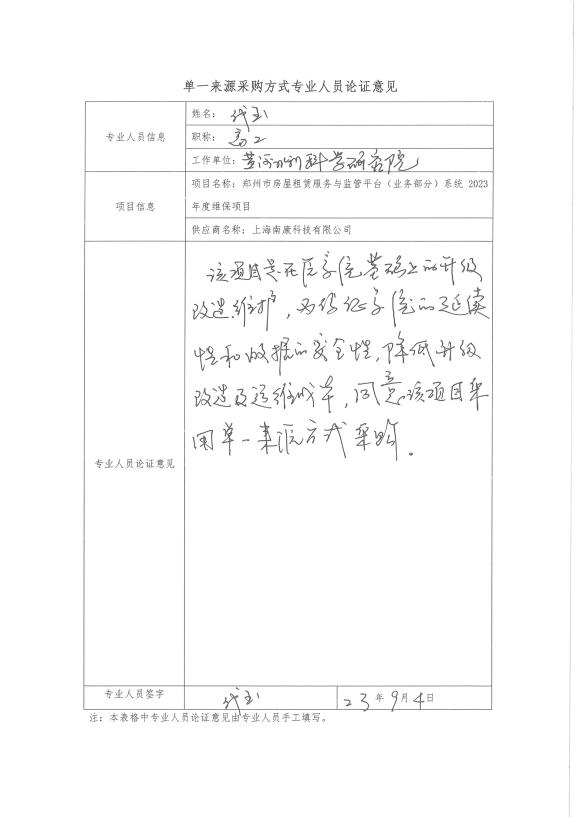 单一来源采购方式专业人员论证意见
专业人员信息
姓名：代玉
职称：高工
工作单位：黄河水利科学研究院
项目信息
项目名称：郑州市房屋租赁服务与监管平台（业务部分）系统 2023
年度维保项目
供应商名称：上海南康科技有限公司
专业人员论证意见
该项目是在原系统基础上的升级
改造维护，为保证系统的延续
性和数据的安全性，降低升级
改造及运维成本，同意该项目采
用单一来源方式采购。
专业人员签字
代玉
23 年 9 月 4 日
注：本表格中专业人员论证意见由专业人员手工填写。